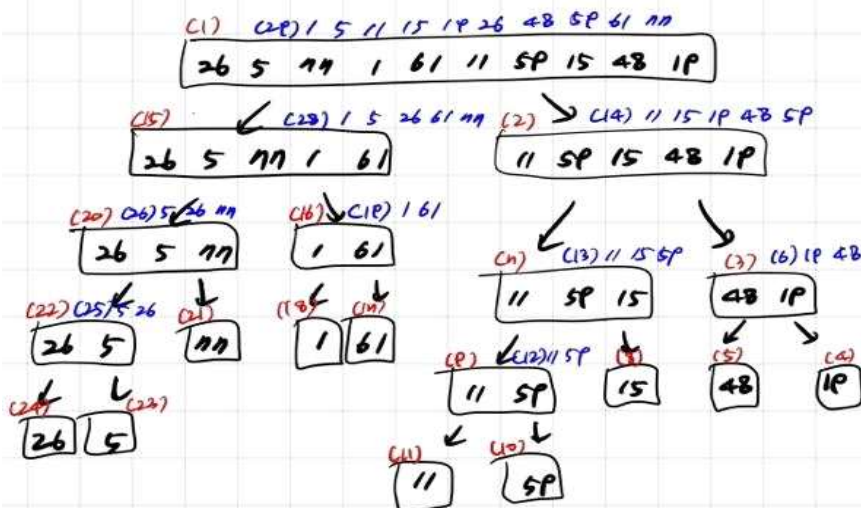 (1) (29) 1 5 11 15 19 26 48 59 61 77
26 5 77 1 61 11 59 15 48 19
(15) (28) 1 5 26 61 77 (2) (14) 11 15 19 48 59
26 5 77 1 61 11 59 15 48 19
(20) (26) 5 26 77 (16) (19) 1 61
26 5 77 1 61
(7) (13) 11 15 59 (3) (6) 19 48
11 59 15 48 19
(22) (25) 5 26 (21) (18) (17)
26 5 77 1 61
(9) (12) 11 59 (8) (5) (4)
11 59 15 48 19
(24) (23)
26 5
(11) (10)
11 59